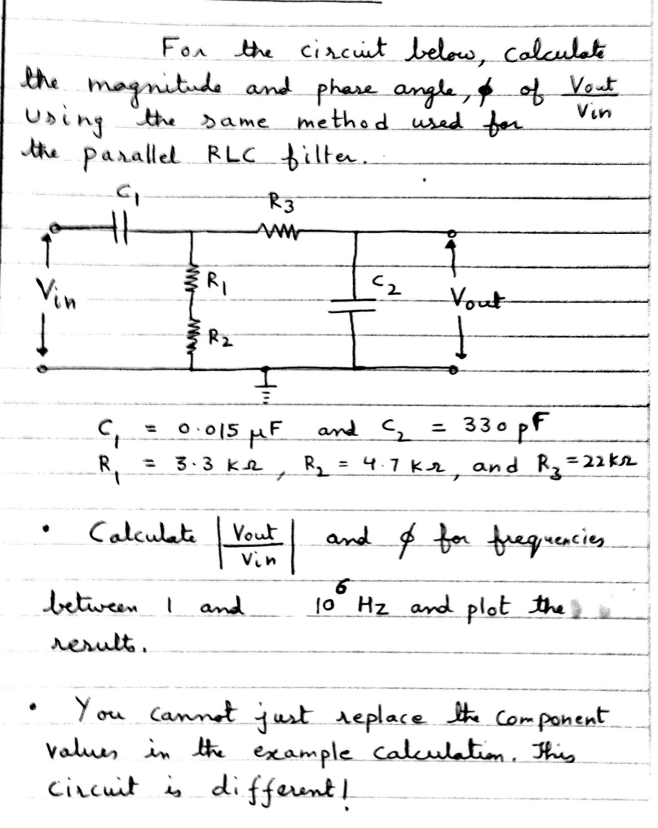 For the circuit below, calculate
the magnitude and phase angle, ϕ of Vout/Vin
using the same method used for
the parallel RLC filter.
C1 R3
Vin R1 C2 Vout
R2
C1 = 0.015 μF and C2 = 330 pF
R1 = 3.3 kΩ, R2 = 4.7 kΩ, and R3 = 22 kΩ
• Calculate |Vout/Vin| and ϕ for frequencies
between 1 and 10^6 Hz and plot the
results.
• You cannot just replace the component
values in the example calculation. This
circuit is different!